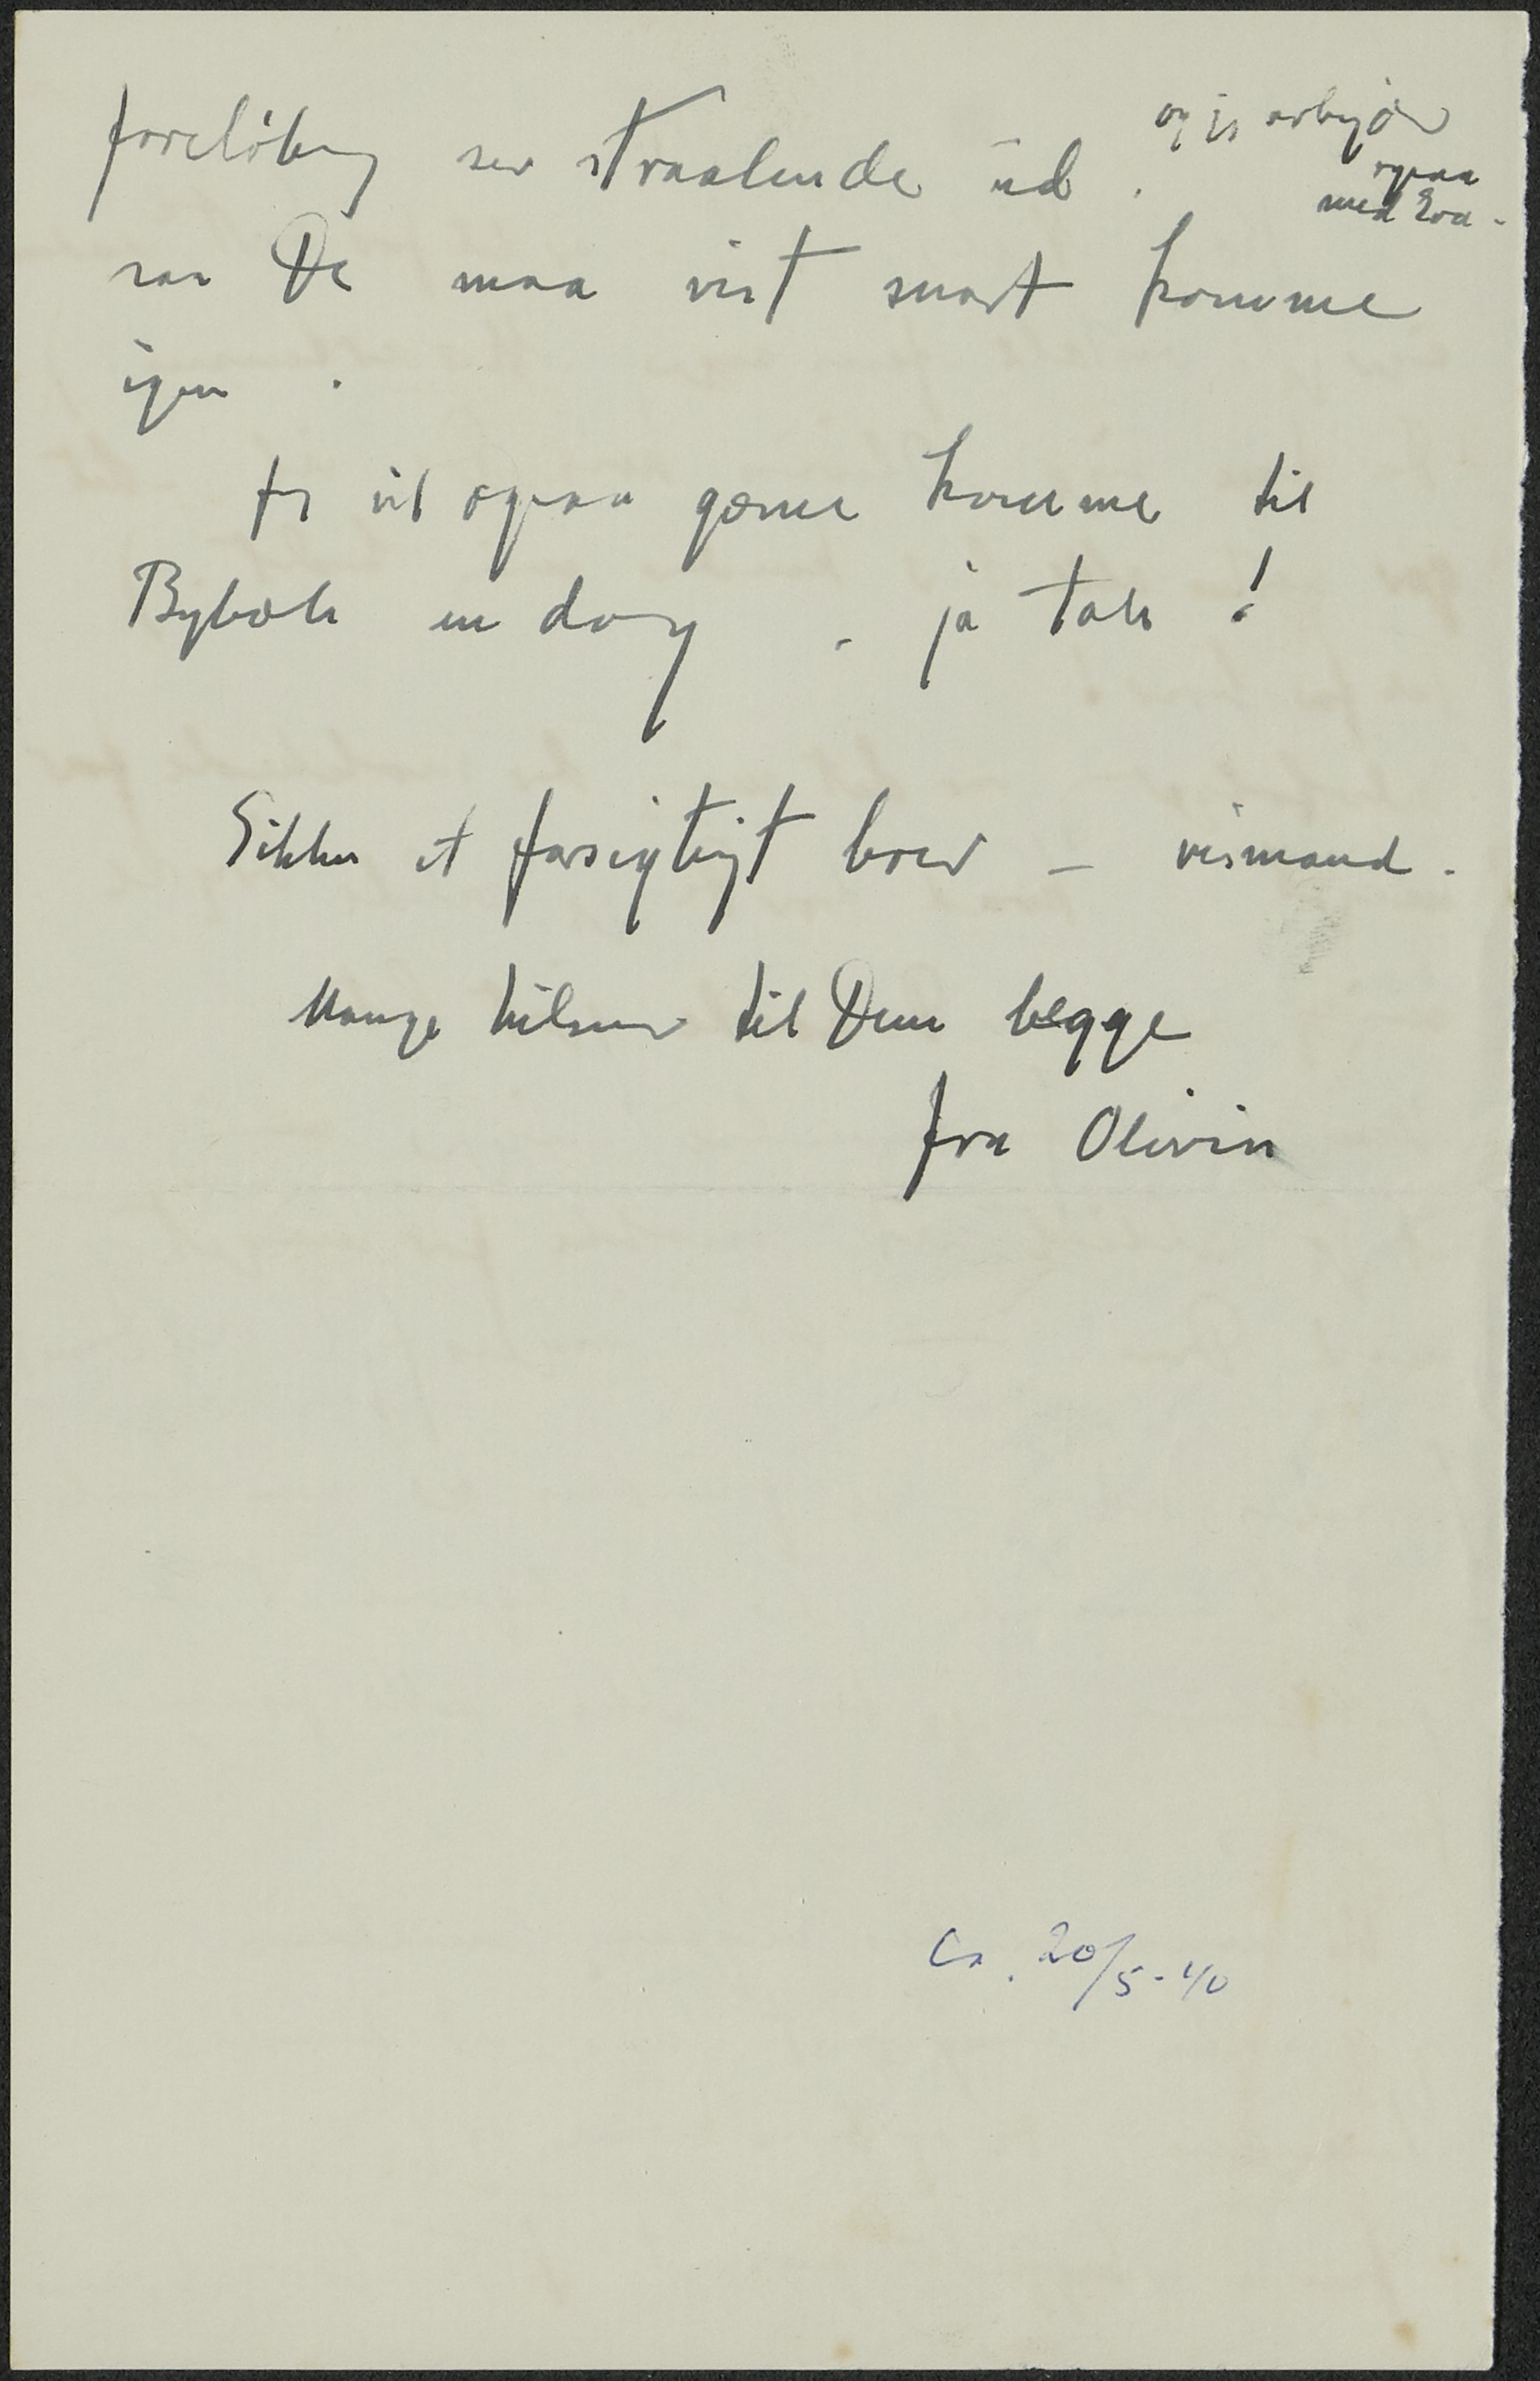 foreløbig ser straalende ud .
og jeg arbejder
ogsaa
med Eva -
saa De maa vist snart komme
igen .
Jeg vil ogsaa gerne komme til
Bybæk en dag - ja tak !
Sikken et forsigtigt brev - vismand .
Mange hilsner til Dem begge
fra Olivia
Ca. 20/5-40